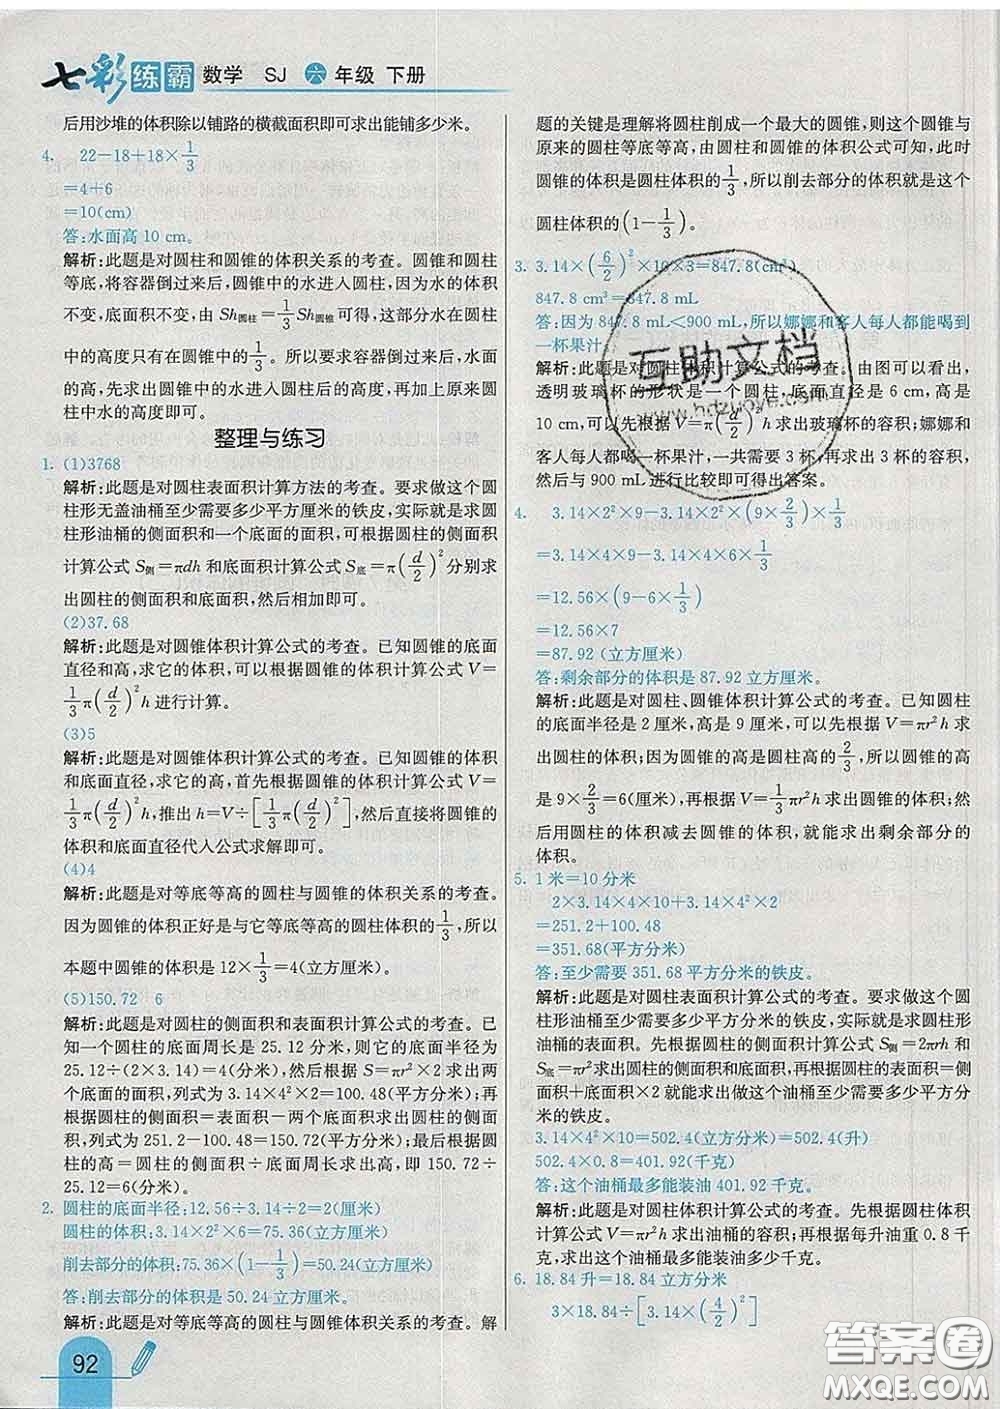 七彩练霸 数学 SJ 六年级 下册
后用沙堆的体积除以铺路的横截面积即可求出能铺多少米。
4. 22-18+18×1/3
=4+6
=10(cm)
答:水面高 10 cm。
解析:此题是对圆柱和圆锥的体积关系的考查。圆锥和圆柱
等底,将容器倒过来后,圆锥中的水进入圆柱,因为水的体积
不变,底面积不变,由 Sh圆柱=1/3Sh圆锥可得,这部分水在圆柱
中的高度只有在圆锥中的1/3。所以要求容器倒过来后,水面
的高,先求出圆锥中的水进入圆柱后的高度,再加上原来圆
柱中水的高度即可。
整理与练习
1. (1)3768
解析:此题是对圆柱表面积计算方法的考查。要求做这个圆
柱形无盖油桶至少需要多少平方厘米的铁皮,实际就是求圆
柱形油桶的侧面积和一个底面的面积,可根据圆柱的侧面积
计算公式 S侧=πdh 和底面积计算公式 S底=π(d/2)²分别求
出圆柱的侧面积和底面积,然后相加即可。
(2)37.68
解析:此题是对圆锥体积计算公式的考查。已知圆锥的底面
直径和高,求它的体积,可以根据圆锥的体积计算公式 V=
1/3π(d/2)²h进行计算。
(3)5
解析:此题是对圆锥体积计算公式的考查。已知圆锥的体积
和底面直径,求它的高,首先根据圆锥的体积计算公式 V=
1/3π(d/2)²h,推出 h=V÷[1/3π(d/2)²],然后直接将圆锥
的体积和底面直径代入公式求解即可。
(4)4
解析:此题是对等底等高的圆柱与圆锥的体积关系的考查。
因为圆锥的体积正好是与它等底等高的圆柱体积的1/3,所以
本题中圆锥的体积是 12×1/3=4(立方厘米)。
(5)150.72 6
解析:此题是对圆柱的侧面积和表面积计算公式的考查。已
知一个圆柱的底面周长是 25.12 分米,则它的底面半径为
25.12÷(2×3.14)=4(分米),然后根据 S=πr²×2 求出两
个底面的面积,列式为 3.14×4²×2=100.48(平方分米);再
根据圆柱的侧面积=表面积-两个底面积求出圆柱的侧面
积,列式为 251.2-100.48=150.72(平方分米);最后根据圆
柱的高=圆柱的侧面积÷底面周长求出高,即 150.72÷
25.12=6(分米)。
2. 圆柱的底面半径:12.56÷3.14÷2=2(厘米)
圆柱的体积:3.14×2²×6=75.36(立方厘米)
削去部分的体积:75.36×(1-1/3)=50.24(立方厘米)
答:削去部分的体积是 50.24 立方厘米。
解析:此题是对等底等高的圆柱与圆锥体积关系的考查。解
92
题的关键是理解将圆柱削成一个最大的圆锥,则这个圆锥与
原来的圆柱等底等高,由圆柱和圆锥的体积公式可知,此时
圆锥的体积是圆柱体积的1/3,所以削去部分的体积就是这个
圆柱体积的(1-1/3)。
3. 3.14×(6/2)²×10×3=847.8(cm³)
847.8 cm³=847.8 mL
答:因为 847.8 mL<900 mL,所以娜娜和客人每人都能喝到
一杯果汁。
解析:此题是对圆柱体积计算公式的考查。由图可以看出,
透明玻璃杯的形状是一个圆柱,底面直径是 6 cm,高是
10 cm,可以先根据 V=π(d/2)²h 求出玻璃杯的容积;娜娜和
客人每人都能喝一杯果汁,一共需要 3 杯,再求出 3 杯的容积,
然后与 900 mL 进行比较即可得出答案。
互助文档
www.hdzuoye.com
4. 3.14×2²×9-3.14×2²×(9×2/3)×1/3
=3.14×4×9-3.14×4×6×1/3
=12.56×(9-6×1/3)
=12.56×7
=87.92(立方厘米)
答:剩余部分的体积是 87.92 立方厘米。
解析:此题是对圆柱、圆锥体积计算公式的考查。已知圆柱
的底面半径是 2 厘米,高是 9 厘米,可以先根据 V=πr²h 求
出圆柱的体积;因为圆锥的高是圆柱高的2/3,所以圆锥的高
是 9×2/3=6(厘米),再根据 V=1/3πr²h 求出圆锥的体积;然
后用圆柱的体积减去圆锥的体积,就能求出剩余部分的
体积。
5. 1 米=10 分米
2×3.14×4×10+3.14×4²×2
=251.2+100.48
=351.68(平方分米)
答:至少需要 351.68 平方分米的铁皮。
解析:此题是对圆柱表面积计算公式的考查。要求做这个圆
柱形油桶至少需要多少平方分米的铁皮,实际就是求圆柱形
油桶的表面积。先根据圆柱的侧面积计算公式 S侧=2πrh 和
S底=πr²求出圆柱的侧面积和底面积,再根据表面积=侧面
积+底面积×2 就能求出做这个油桶至少需要多少平方分
米的铁皮。
3.14×4²×10=502.4(立方分米)=502.4(升)
502.4×0.8=401.92(千克)
答:这个油桶最多能装油 401.92 千克。
解析:此题是对圆柱体积计算公式的考查。先根据圆柱体积
计算公式 V=πr²h 求出油桶的容积;再根据每升油重 0.8 千
克,求出这个油桶最多能装油多少千克。
6. 18.84 升=18.84 立方分米
3×18.84÷[3.14×(4/2)²]
答案圈
MXQE.COM